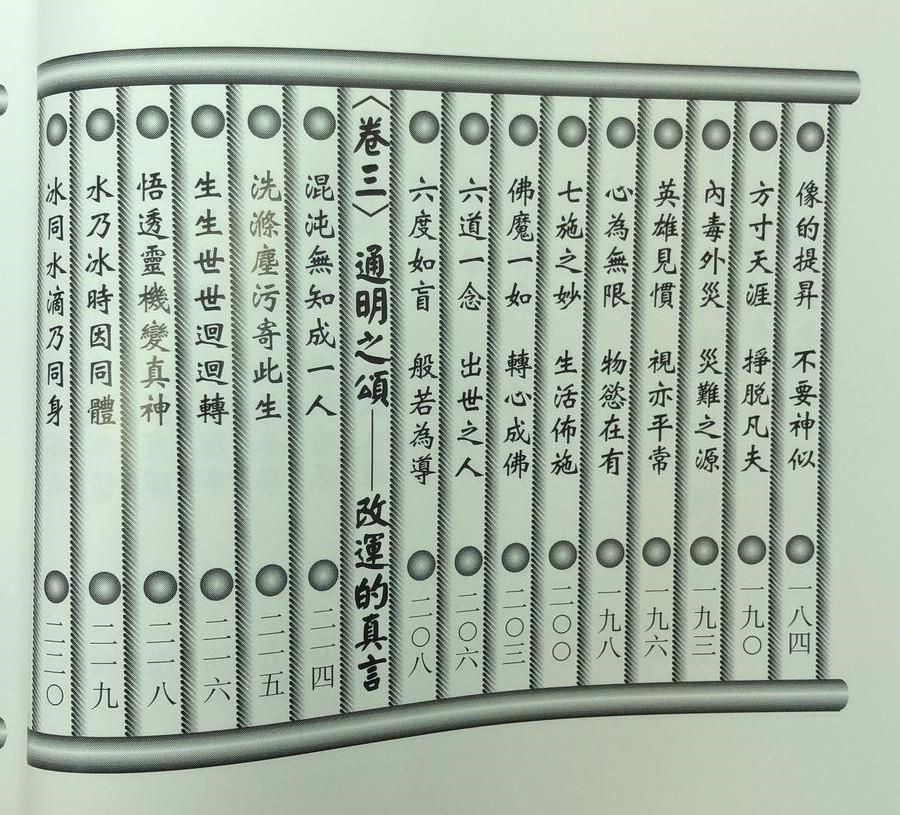 像的提昇 不要神似 一八四
方寸天涯 掙脫凡夫 一九〇
內毒外災 災難之源 一九三
英雄見慣 視亦平常 一九六
心為無限 物慾在有 一九八
七施之妙 生活佈施 二〇〇
佛魔一如 轉心成佛 二〇三
六道一念 出世之人 二〇六
六度如盲 般若為導 二〇八
〈卷三〉通明之頌——改運的真言
混沌無知成一人 二一四
洗滌塵污寄此生 二一五
生生世世迴迴轉 二一六
悟透靈機變真神 二一八
水乃冰時因同體 二一九
冰同水滴乃同身 二二〇